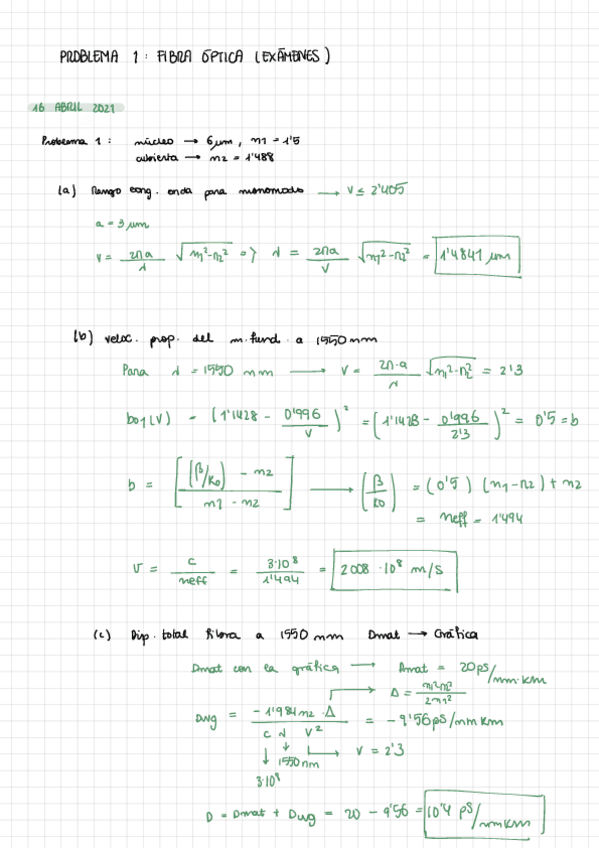 PROBLEMA 1: FIBRA ÓPTICA (EXÁMENES)
16 ABRIL 2021
Problema 1: núcleo → 6μm, n1 = 1'5
cubierta → n2 = 1'488
(a) Rango long. onda para monomodo → V ≤ 2'405
a = 3 μm
V = 2πa/λ √n1²-n2² => λ = 2πa/V √n1²-n2² = 1'4841 μm
(b) veloc. prop. del m. fund. a 1550 nm
Para λ = 1550 nm → V = 2π·a/λ √n1²-n2² = 2'3
b01(V) = (1'1428 - 0'996/V)² = (1'1428 - 0'996/2'3)² = 0'5 = b
b = [(β/k0) - n2 / n1 - n2] → (β/k0) = (0'5) (n1-n2) + n2
= neff = 1'494
v = c/neff = 3·10⁸/1'494 = 2008·10⁸ m/s
(c) Disp. total fibra a 1550 nm Dmat → Gráfica
Dmat con la gráfica → Dmat = 20 ps/nm·km
Δ = n1²-n2²/2n1²
Dwg = -1'984 n2·Δ / c λ V² = -9'56 ps/nm km
1550 nm → V = 2'3
3·10⁸
D = Dmat + Dwg = 20 - 9'56 = 10'4 ps/nm km